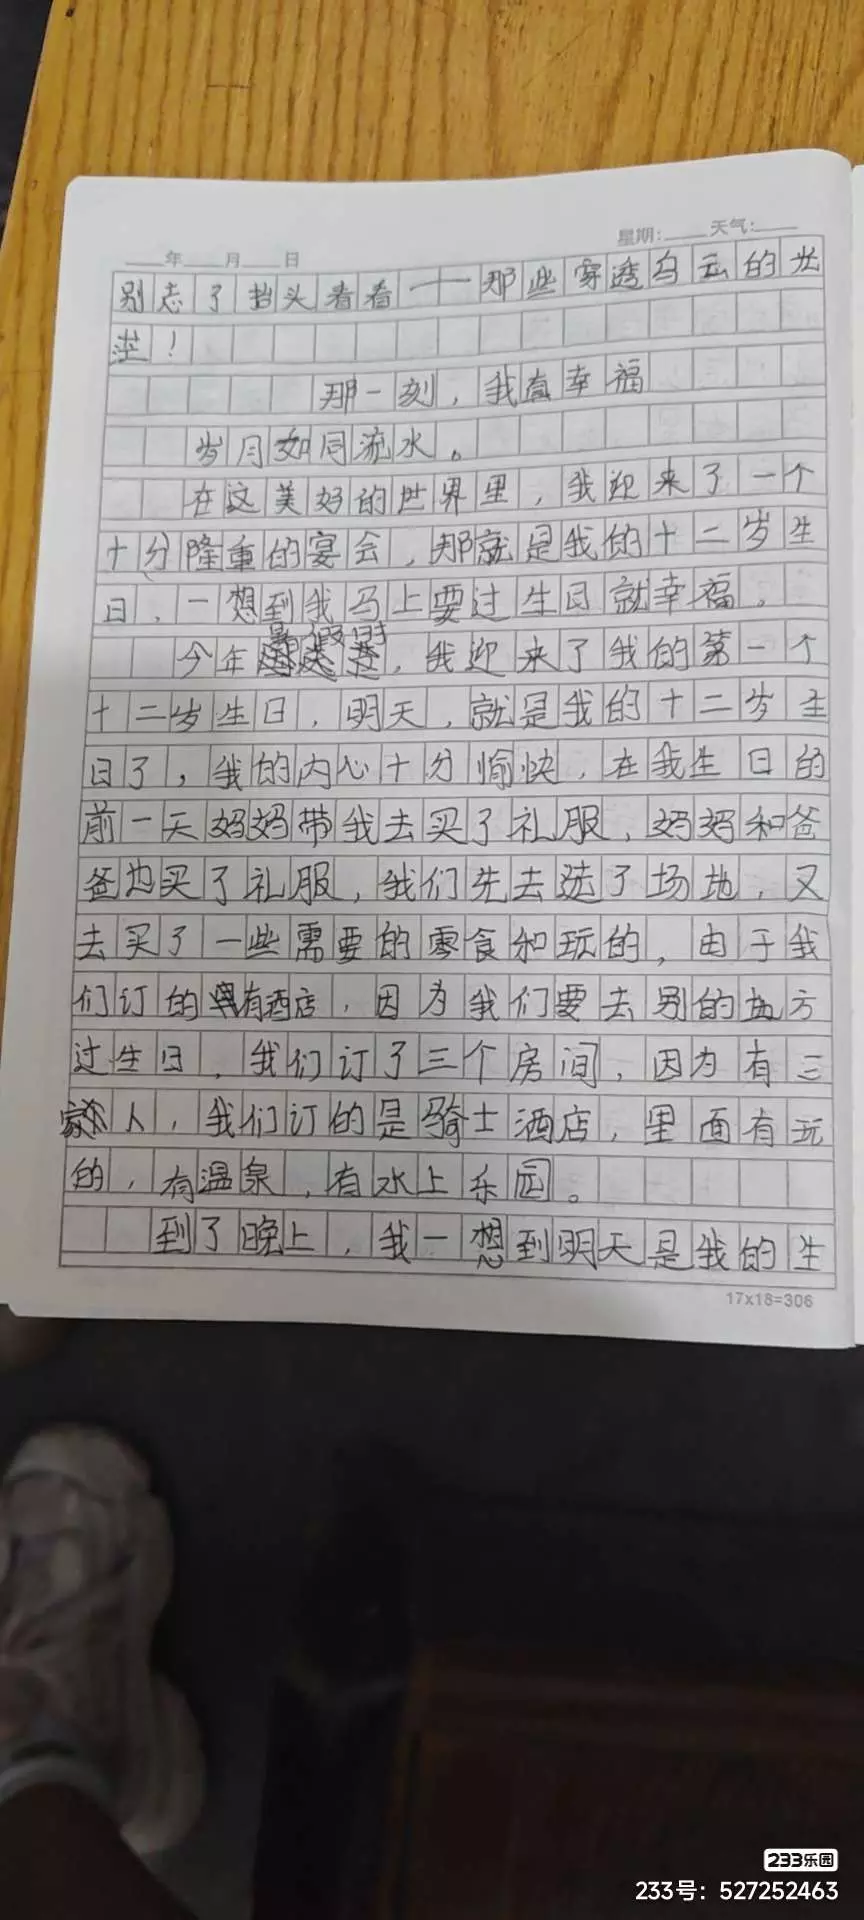 星期：____天气：____
____年____月____日
别志了抬头看看——那些穿透乌云的光
茫！
那一刻，我真幸福
岁月如同流水。
在这美好的世界里，我迎来了一个
十分隆重的宴会，那就是我的十二岁生
日，一想到我马上要过生日就幸福。
暑假时
今年，我迎来了我的第一个
十二岁生日，明天，就是我的十二岁生
日了，我的内心十分愉快，在我生日的
前一天妈妈带我去买了礼服，妈妈和爸
爸也买了礼服，我们先去选了场地，又
去买了一些需要的零食和玩的，由于我
们订的有酒店，因为我们要去别的地方
过生日，我们订了三个房间，因为有三
家人，我们订的是骑士酒店，里面有玩
的，有温泉，有水上乐园。
到了晚上，我一想到明天是我的生
17x18=306
233乐园
233号：527252463